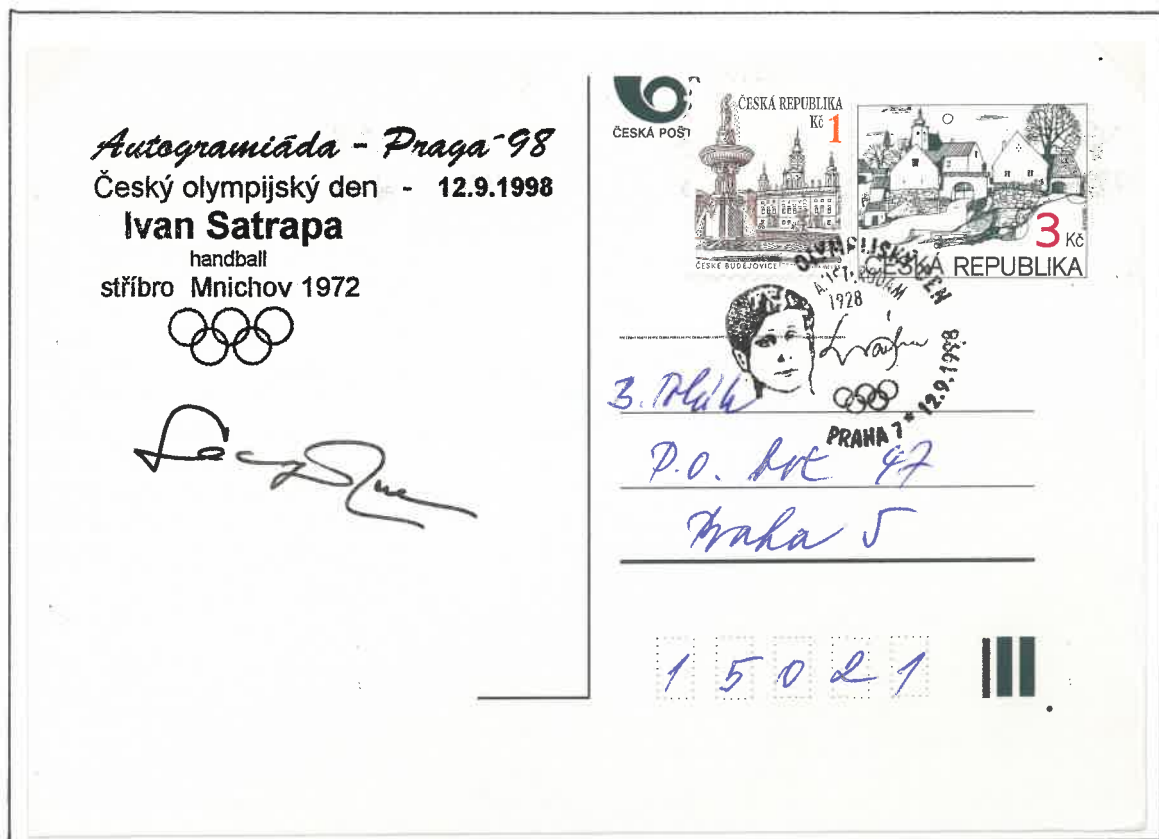 Autogramiáda - Praga ´98
Český olympijský den - 12.9.1998
Ivan Satrapa
handball
stříbro Mnichov 1972
ČESKÁ POŠT
ČESKÁ REPUBLIKA
Kč 1
ČESKÉ BUDĚJOVICE
3 Kč
ČESKÁ REPUBLIKA
OLYMPIJSKÝ DEN
1928
12.9.1998
PRAHA 7 *
B.
P.O. box 47
Praha 5
15021